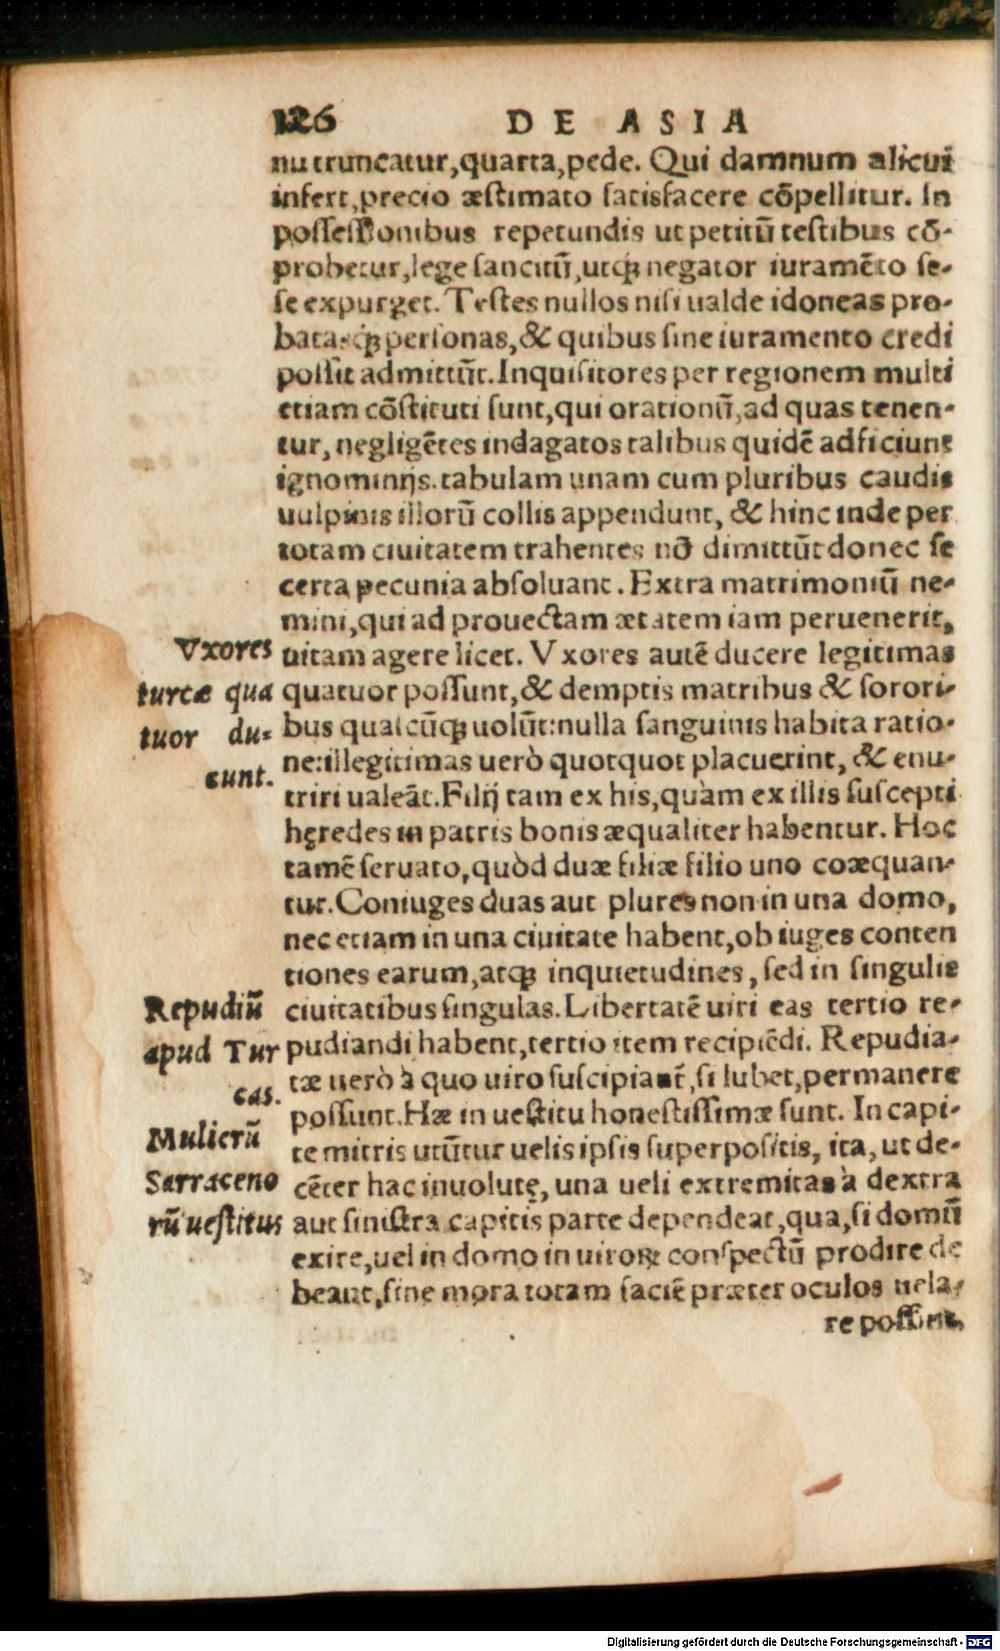 126 DE ASIA
nu truncatur, quarta, pede. Qui damnum alicui
infert, precio æstimato satisfacere cōpellitur. In
possessionibus repetundis ut petitū testibus cō-
probetur, lege sancitū, utq́ꝫ negator iuramēto se-
se expurget. Testes nullos nisi ualde idoneas pro-
batasq́ꝫ personas, & quibus sine iuramento credi
possit admittūt. Inquisitores per regionem multi
etiam cōstituti sunt, qui orationū, ad quas tenen-
tur, negligētes indagatos talibus quidē adficiunt
ignominijs. tabulam unam cum pluribus caudis
uulpinis illorū collis appendunt, & hinc inde per
totam ciuitatem trahentes nō dimittūt donec se
certa pecunia absoluant. Extra matrimoniū ne-
mini, qui ad prouectam ætatem iam peruenerit,
uitam agere licet. Vxores autē ducere legitimas
quatuor possunt, & demptis matribus & sorori-
bus qualcūqꝫ uolūt: nulla sanguinis habita ratio-
ne: illegitimas uerò quotquot placuerint, & enu-
triri ualeāt. Filij tam ex his, quàm ex illis suscepti
hęredes in patris bonis æqualiter habentur. Hoc
tamē seruato, quòd duæ filiæ filio uno coæquan-
tur. Coniuges duas aut plures non in una domo,
nec etiam in una ciuitate habent, ob iuges conten
tiones earum, atqꝫ inquietudines, sed in singulis
ciuitatibus singulas. Libertatē uiri eas tertio re-
pudiandi habent, tertio item recipiēdi. Repudia-
tæ uerò à quo uiro suscipiant, si lubet, permanere
possunt. Hæ in uestitu honestissimæ sunt. In capi-
te mitris utūtur uelis ipsis superpositis, ita, ut de-
cēter hac inuolutę, una ueli extremitas à dextra
aut sinistra capitis parte dependeat, qua, si domū
exire, uel in domo in uiroꝝ conspectū prodire de
beant, sine mora totam faciē præter oculos uela-
re possint.
Vxores
turcæ qua
tuor du-
cunt.
Repudiū
apud Tur
cas.
Mulierū
Sarraceno
rū uestitus
Digitalisierung gefördert durch die Deutsche Forschungsgemeinschaft - DFG